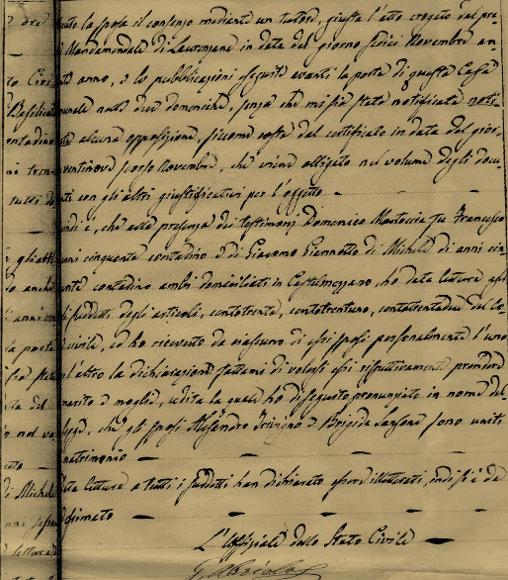 nuto la sposa il consenso mediante un tutore, giusta l'atto erogato dal pre-
Mandamentale di Laurenzana in data del giorno sedici Novembre an-
anno, e le pubblicazioni eseguite avanti la porta di questa Casa
nelle due domeniche, senza che mi sia stata notificata
alcuna opposizione, siccome costa dal certificato in data del gior-
ventinove scorso Novembre, che viene allegato nel volume degli docu-
ti con gli altri giustificativi per l'oggetto
che alla presenza dei testimoni Domenico Martoccia fu Francesco
cinquanta contadino e di Giacomo Giannotto di Michele di anni cin-
contadino ambi domiciliati in Castelmezzano, ho data lettura agli
suddetti degli articoli, centotrenta, centotrentuno, centotrentadue del Co-
civile, ed ho ricevuto da ciascuno di essi sposi personalmente l'uno
l'altro la dichiarazione fattami di volersi essi rispettivamente prendere
marito e moglie, udita la quale ho di seguito pronunziato in nome del
legge, che gli sposi Alessandro e Brigida Sansone sono uniti
matrimonio
lettura a tutti i suddetti han dichiarato essere illetterati, indi si è da
firmato
L'Uffiziale dello Stato Civile